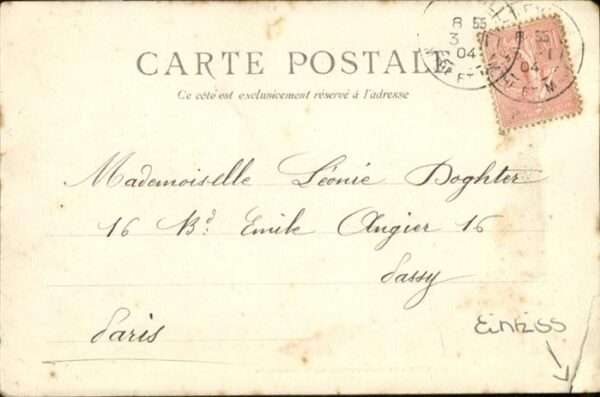 CARTE POSTALE
Ce côté est exclusivement réservé à l'adresse
8 55
3
04
ET
8 55
1
04
ET M
Mademoiselle Léonie Doghter
16 Bd. Emile Augier 16
Passy
Paris
Einriss